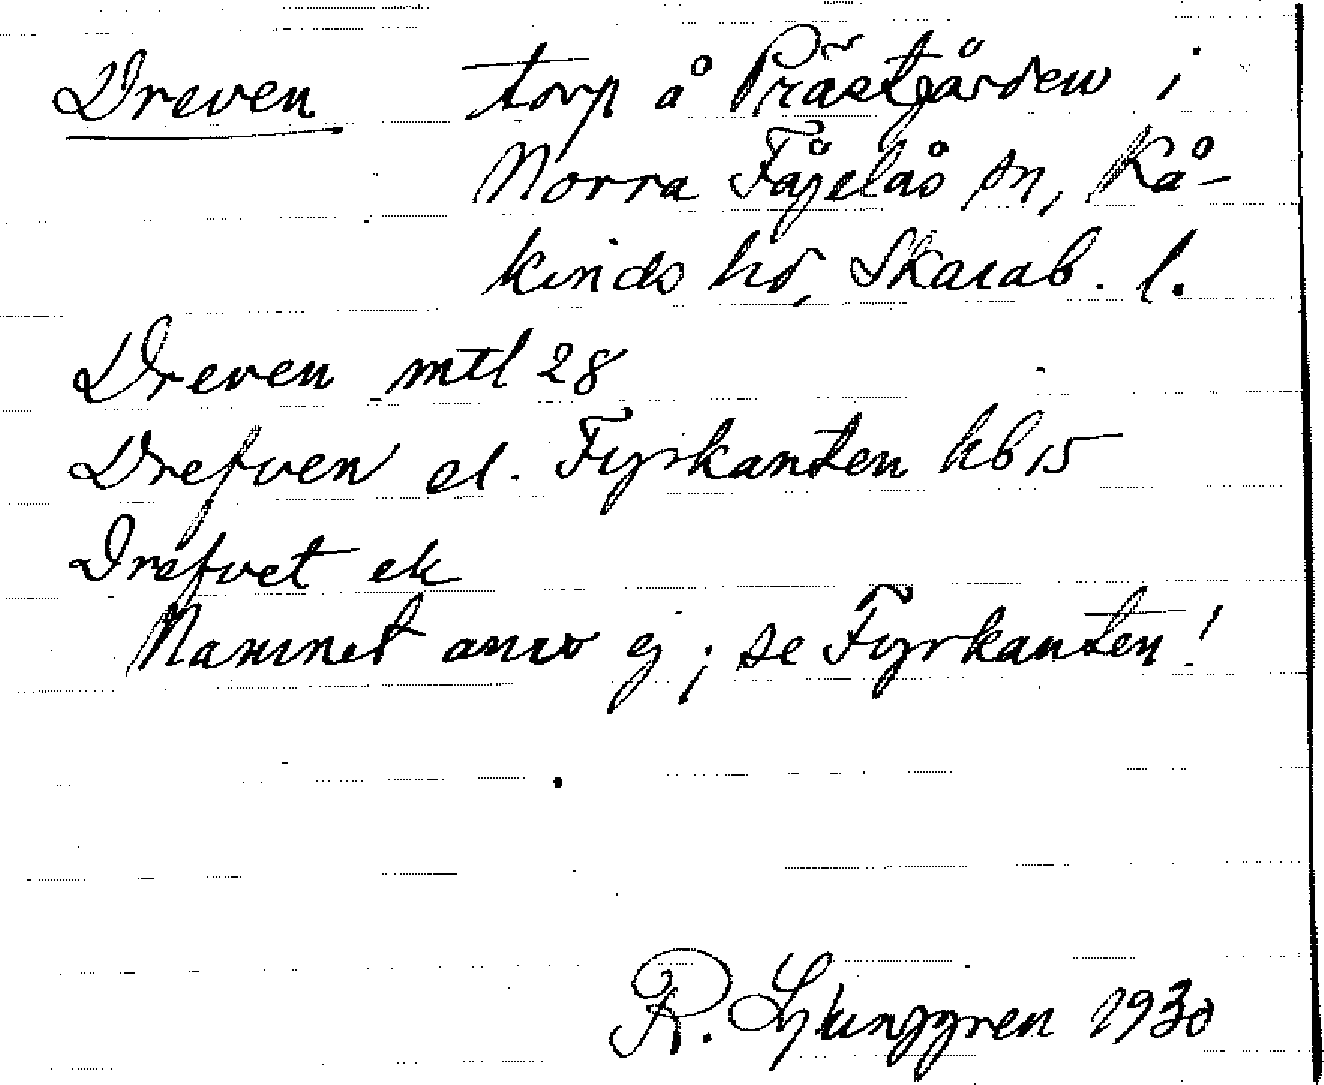 Dreven torp å Prästgården i
Norra Fågelås sn, Kå-
kinds hd, Skarab. l.
Dreven mtl 28
Drefven el. Fyrkanten hb 15
Drefvet ek
Namnet anv ej; se Fyrkanten!
R. Ljunggren 1930